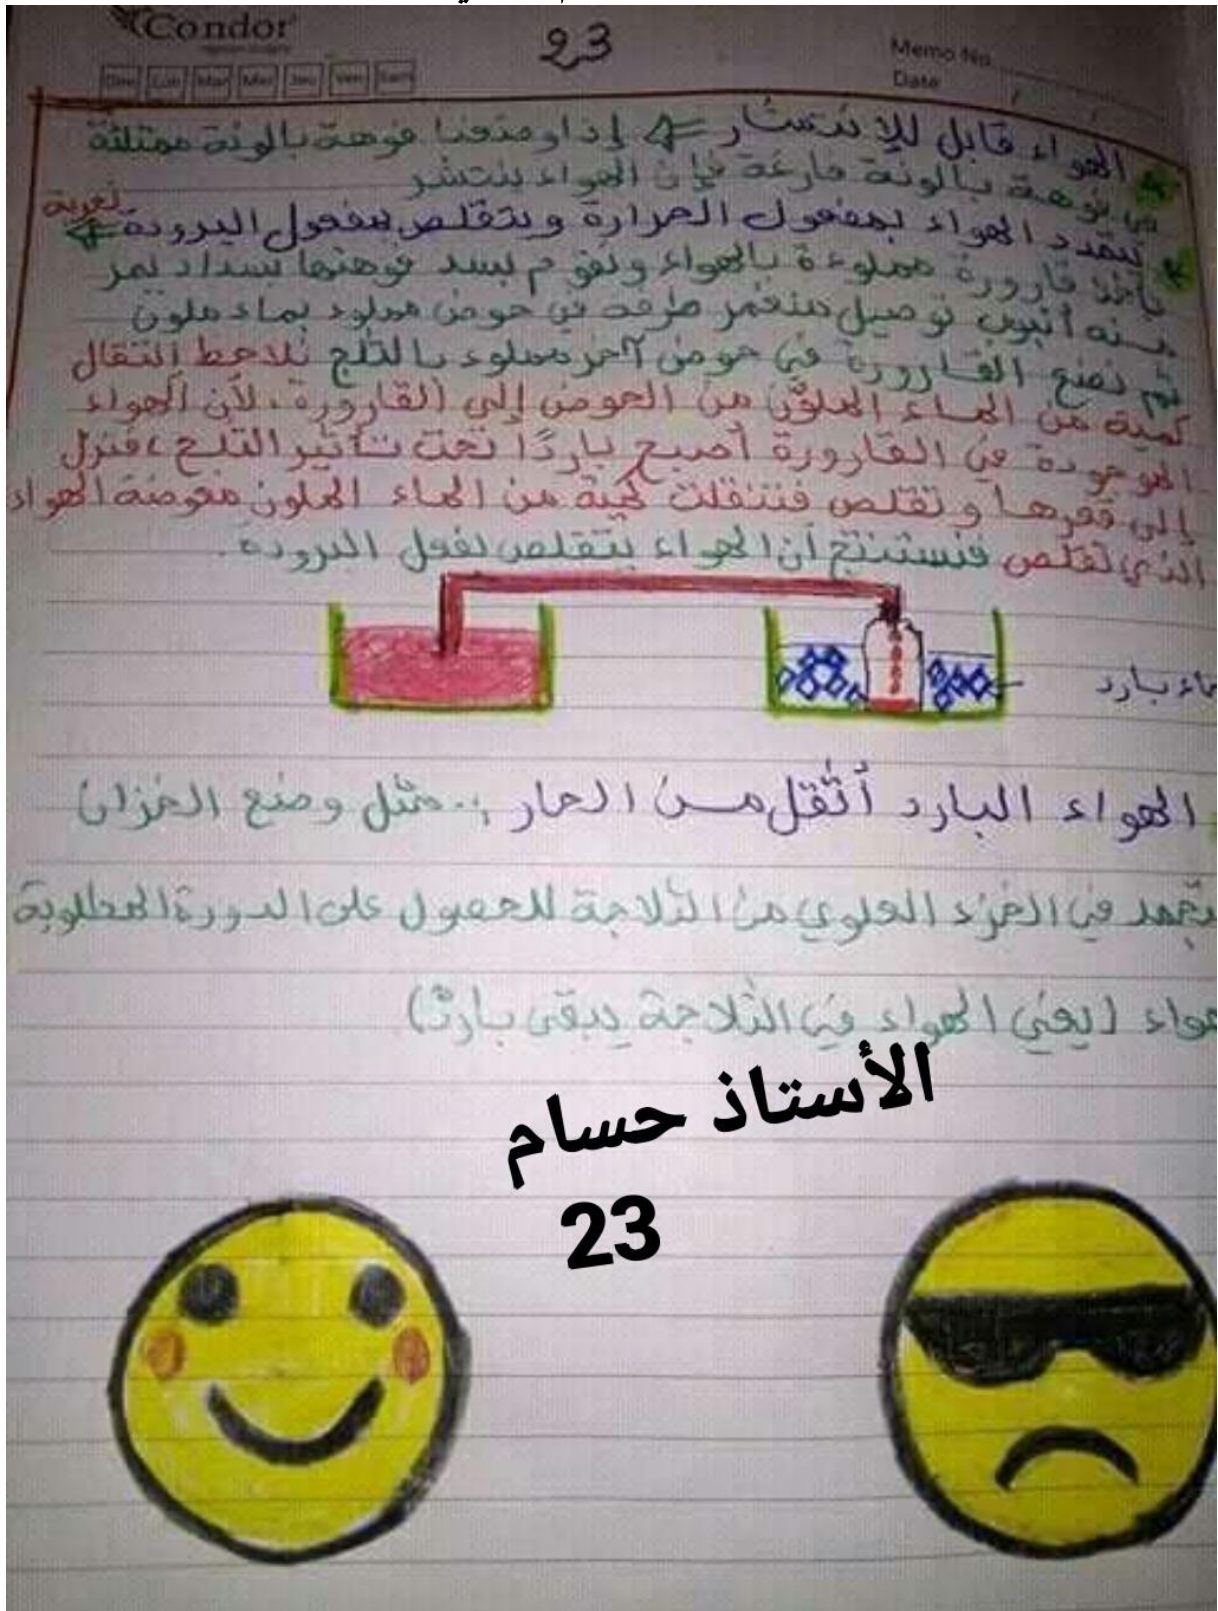 Condor
23
Memo No
Date
Dim Lun Mar Mer Jeu Ven Sam
الهواء قابل للإنتشار ⇐ إذا وضعنا فوهة بالونة ممتلئة
فوهة بالونة فارغة فإن الهواء ينتشر
يتمدد الهواء بمفعول الحرارة ويتقلص بمفعول البرودة ⇐ تجربة
نأخذ قارورة مملوءة بالهواء ونقوم بسد فوهتها بسداد يمر
منه أنبوب توصيل منغمر طرفه في حوض مملوء بماء ملون
ثم نضع القارورة في حوض آخر مملوء بالثلج نلاحظ إنتقال
كمية من الماء الملون من الحوض إلى القارورة، لأن الهواء
الموجودة في القارورة أصبح باردًا تحت تأثير الثلج، فنزل
إلى قعرها وتقلص فتنقلت كمية من الماء الملون معوضة الهواء
الذي تقلص فنستنتج أن الهواء يتقلص بفعل البرودة.
ماء بارد
الهواء البارد أثقل من الحار: مثل وضع الخزان
في الجزء العلوي من الثلاجة للحصول على الدورة المطلوبة
(يعني الهواء في الثلاجة يبقى بارد)
الأستاذ حسام
23